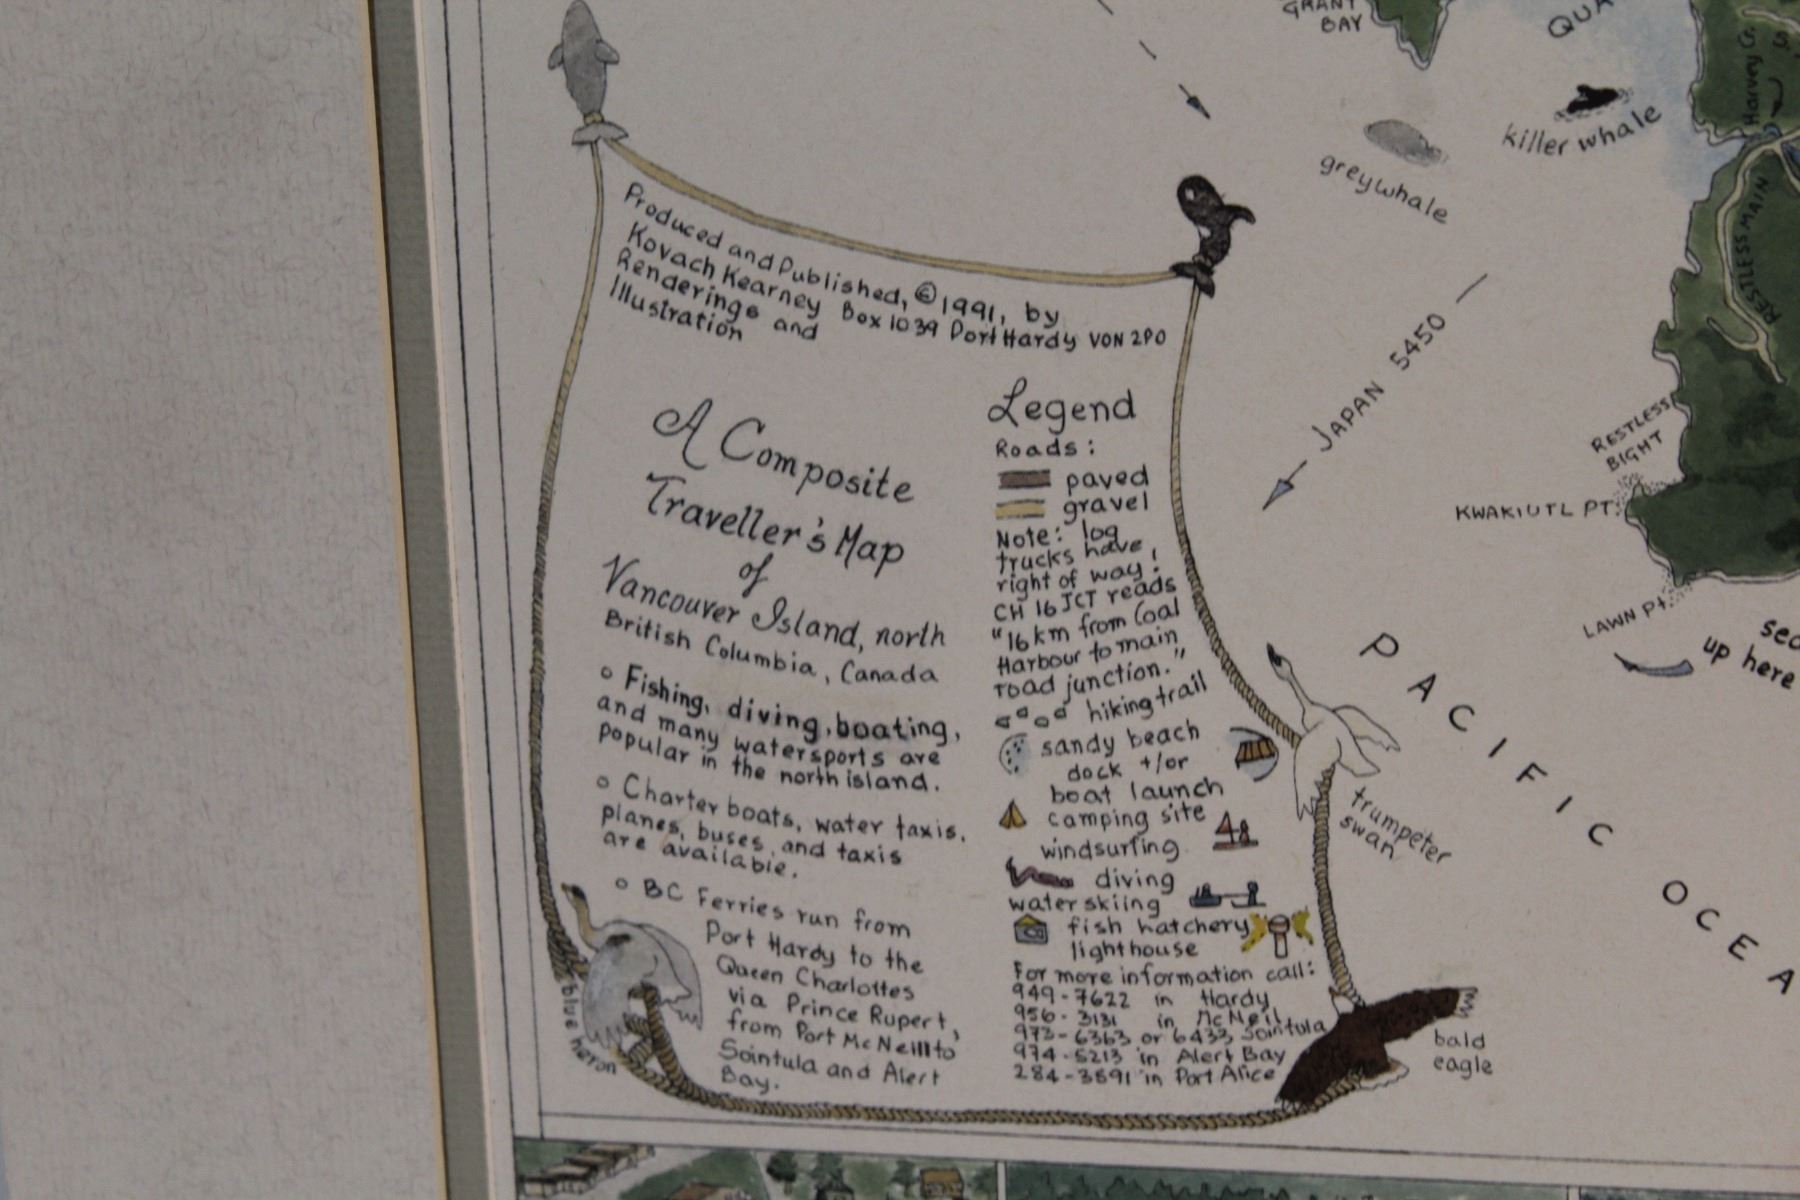 GRANT
BAY
QUA
Harvey Cr.
killer whale
greywhale
RESTLESS MAIN
Produced and Published, © 1991, by
Kovach Kearney Box 1039 Port Hardy V0N 2P0
Renderings and
Illustration
JAPAN 5450
RESTLESS
BIGHT
KWAKIUTL PT.
LAWN Pt.
up here
A Composite
Traveller's Map
of
Vancouver Island, north
British Columbia, Canada
o Fishing, diving, boating,
and many watersports are
popular in the north island.
o Charter boats, water taxis,
planes, buses, and taxis
are available.
o BC Ferries run from
Port Hardy to the
Queen Charlottes
via Prince Rupert,
from Port McNeill to
Sointula and Alert
Bay.
Legend
Roads:
paved
gravel
Note: log
trucks have
right of way!
CH 16 JCT reads
"16 km from Coal
Harbour to main
road junction."
hiking trail
sandy beach
dock +/or
boat launch
camping site
windsurfing
diving
water skiing
fish hatchery
lighthouse
For more information call:
949-7622 in Hardy
956-3131 in McNeil
973-6363 or 6433 Sointula
974-5213 in Alert Bay
284-3891 in Port Alice
PACIFIC OCEA
trumpeter
swan
blue heron
bald
eagle